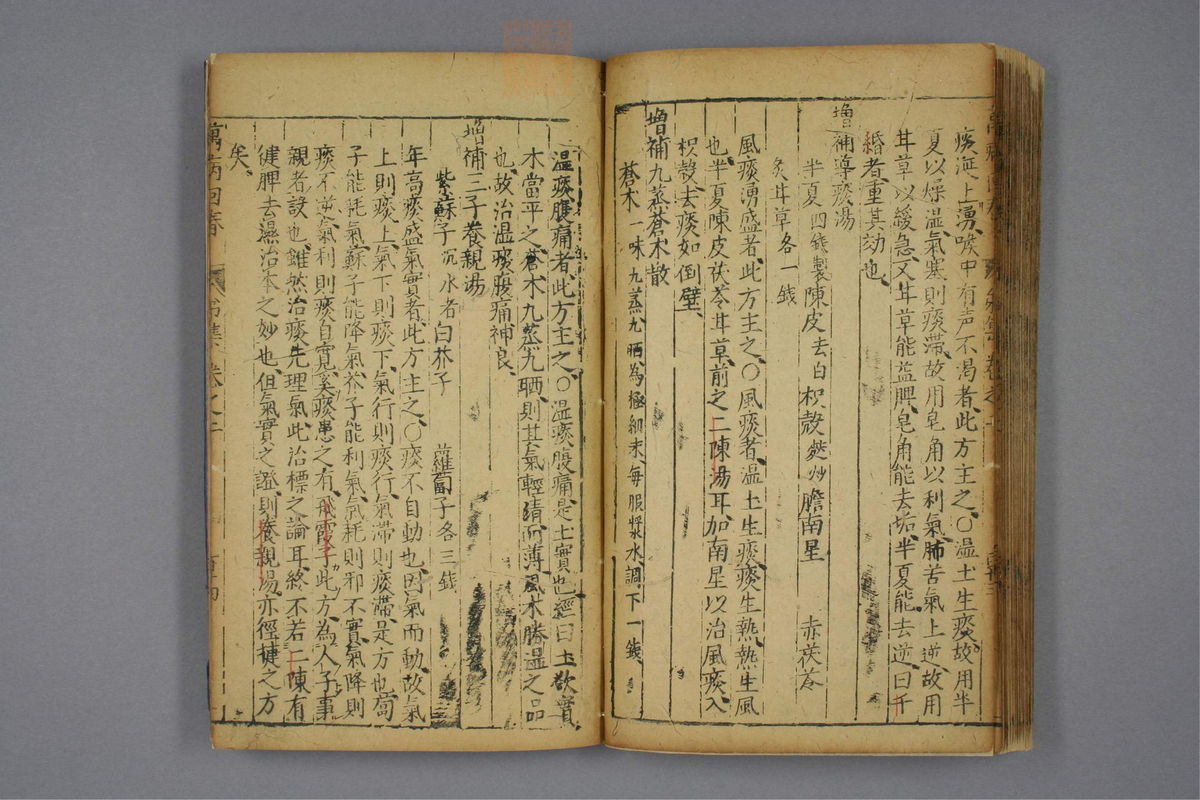 痰涎上湧喉中有声不渴者此方主之〇温土生痰故用半
夏以燥湿氣寒則痰滞故用皂角以利氣肺苦氣上逆故用
甘草以緩急又甘草能益脾皂角能去垢半夏能去逆曰千
緡者重其効也
增補導痰湯
半夏四錢製陳皮去白枳殻麩炒膽南星 赤茯苓
炙甘草各一錢
風痰湧盛者此方主之〇風痰者温土生痰痰生熱熱生風
也半夏陳皮茯苓甘草前之二陳湯耳加南星以治風痰入
枳殻去痰如倒壁
增補九蒸蒼朮散
蒼朮一味九蒸九晒為極細末每服漿水調下一錢
温痰腹痛者此方主之〇温痰腹痛是土實也經曰土欲實
木當平之蒼木九蒸九晒則其氣輕清而薄風木勝温之品
也故治温痰腹痛神良
增補三子養親湯
紫蘇子沉水者白芥子 蘿蔔子各三錢
年高痰盛氣實者此方主之〇痰不自動也因氣而動故氣
上則痰上氣下則痰下氣行則痰行氣滞則痰滞是方也蔔
子能耗氣蘇子能降氣芥子能利氣氣耗則邪不實氣降則
痰不逆氣利則痰自寛奚痰患之有飛霞子此方為人子事
親者設也雖然治痰先理氣此治標之論耳終不若二陳有
健脾去濕治本之妙也但氣實之證則養親湯亦徑捷之方
矣
萬病回春 卷之二